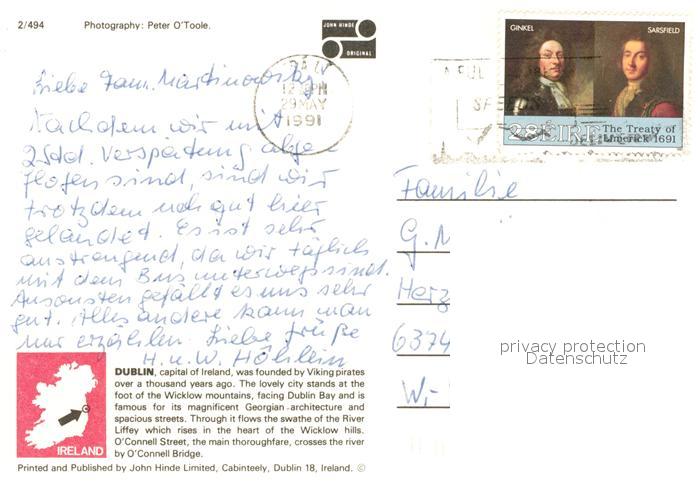 2/494 Photography: Peter O'Toole.
JOHN HINDE
ORIGINAL
GINKEL SARSFIELD
28 EIRE The Treaty of
Limerick 1691
29 MAY
1991
Liebe Fam. Martinowsky
Nachdem wir mit
2 Std. Verspätung abge-
flogen sind, sind wir
trotzdem noch gut hier
gelandet. Es ist sehr
anstrengend, da wir täglich
mit dem Bus unterwegs sind.
Ansonsten gefällt es uns sehr
gut. Alles andere kann man
nur erzählen. Liebe Grüße
H. u. W. Höhlein
Familie
G. M
Herz
6374
W,-
privacy protection
Datenschutz
IRELAND
DUBLIN, capital of Ireland, was founded by Viking pirates
over a thousand years ago. The lovely city stands at the
foot of the Wicklow mountains, facing Dublin Bay and is
famous for its magnificent Georgian architecture and
spacious streets. Through it flows the swathe of the River
Liffey which rises in the heart of the Wicklow hills.
O'Connell Street, the main thoroughfare, crosses the river
by O'Connell Bridge.
Printed and Published by John Hinde Limited, Cabinteely, Dublin 18, Ireland. ©